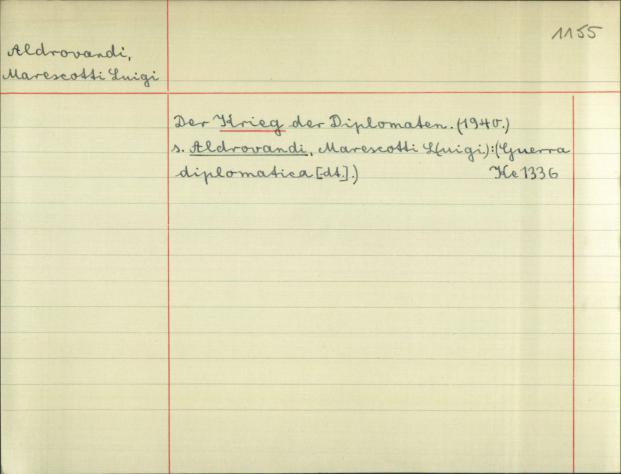 1155
Aldrovandi,
Marescotti Luigi
Der Krieg der Diplomaten. (1940.)
s. Aldrovandi, Marescotti L(uigi.):(Guerra
diplomatica [dt.].) He 1336